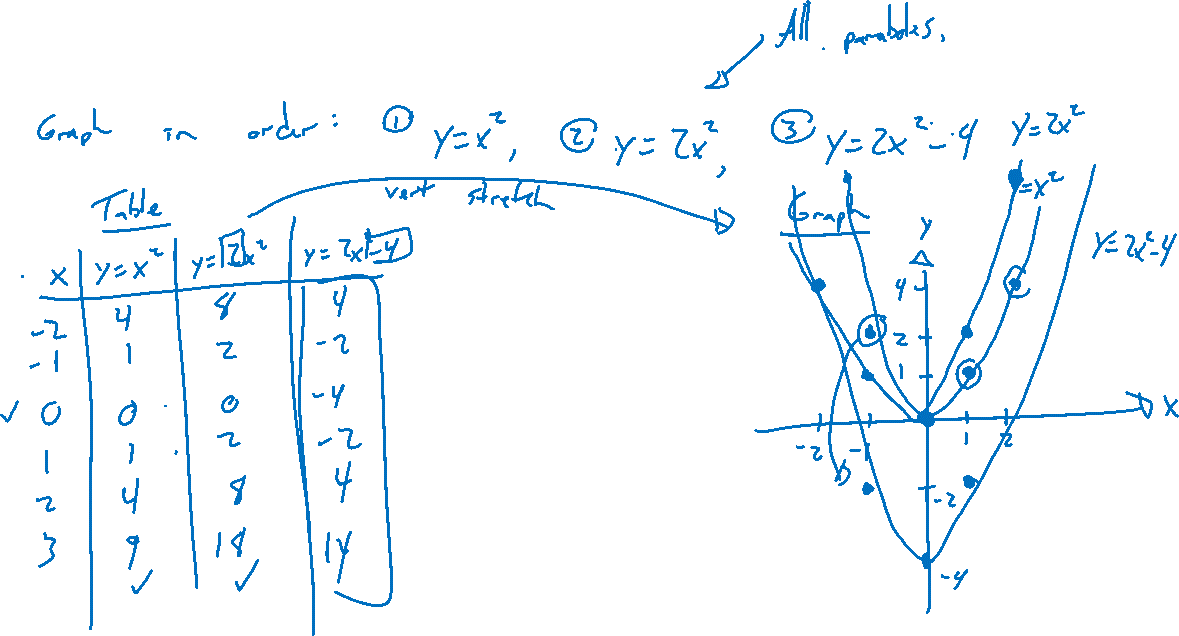 All parabolas.
Graph in order: ① y=x², ② y=2x², ③ y=2x²-4
y=2x²
vert stretch
Table
Graph
=x²
x y=x² y=2x² y=2x²-4
-2 4 8 4
-1 1 2 -2
✓ 0 0 0 -4
1 1 2 -2
2 4 8 4
3 9 18 14
✓ ✓
y
y=2x²-4
4
2
1
x
-2 -1 1 2
-2
-4